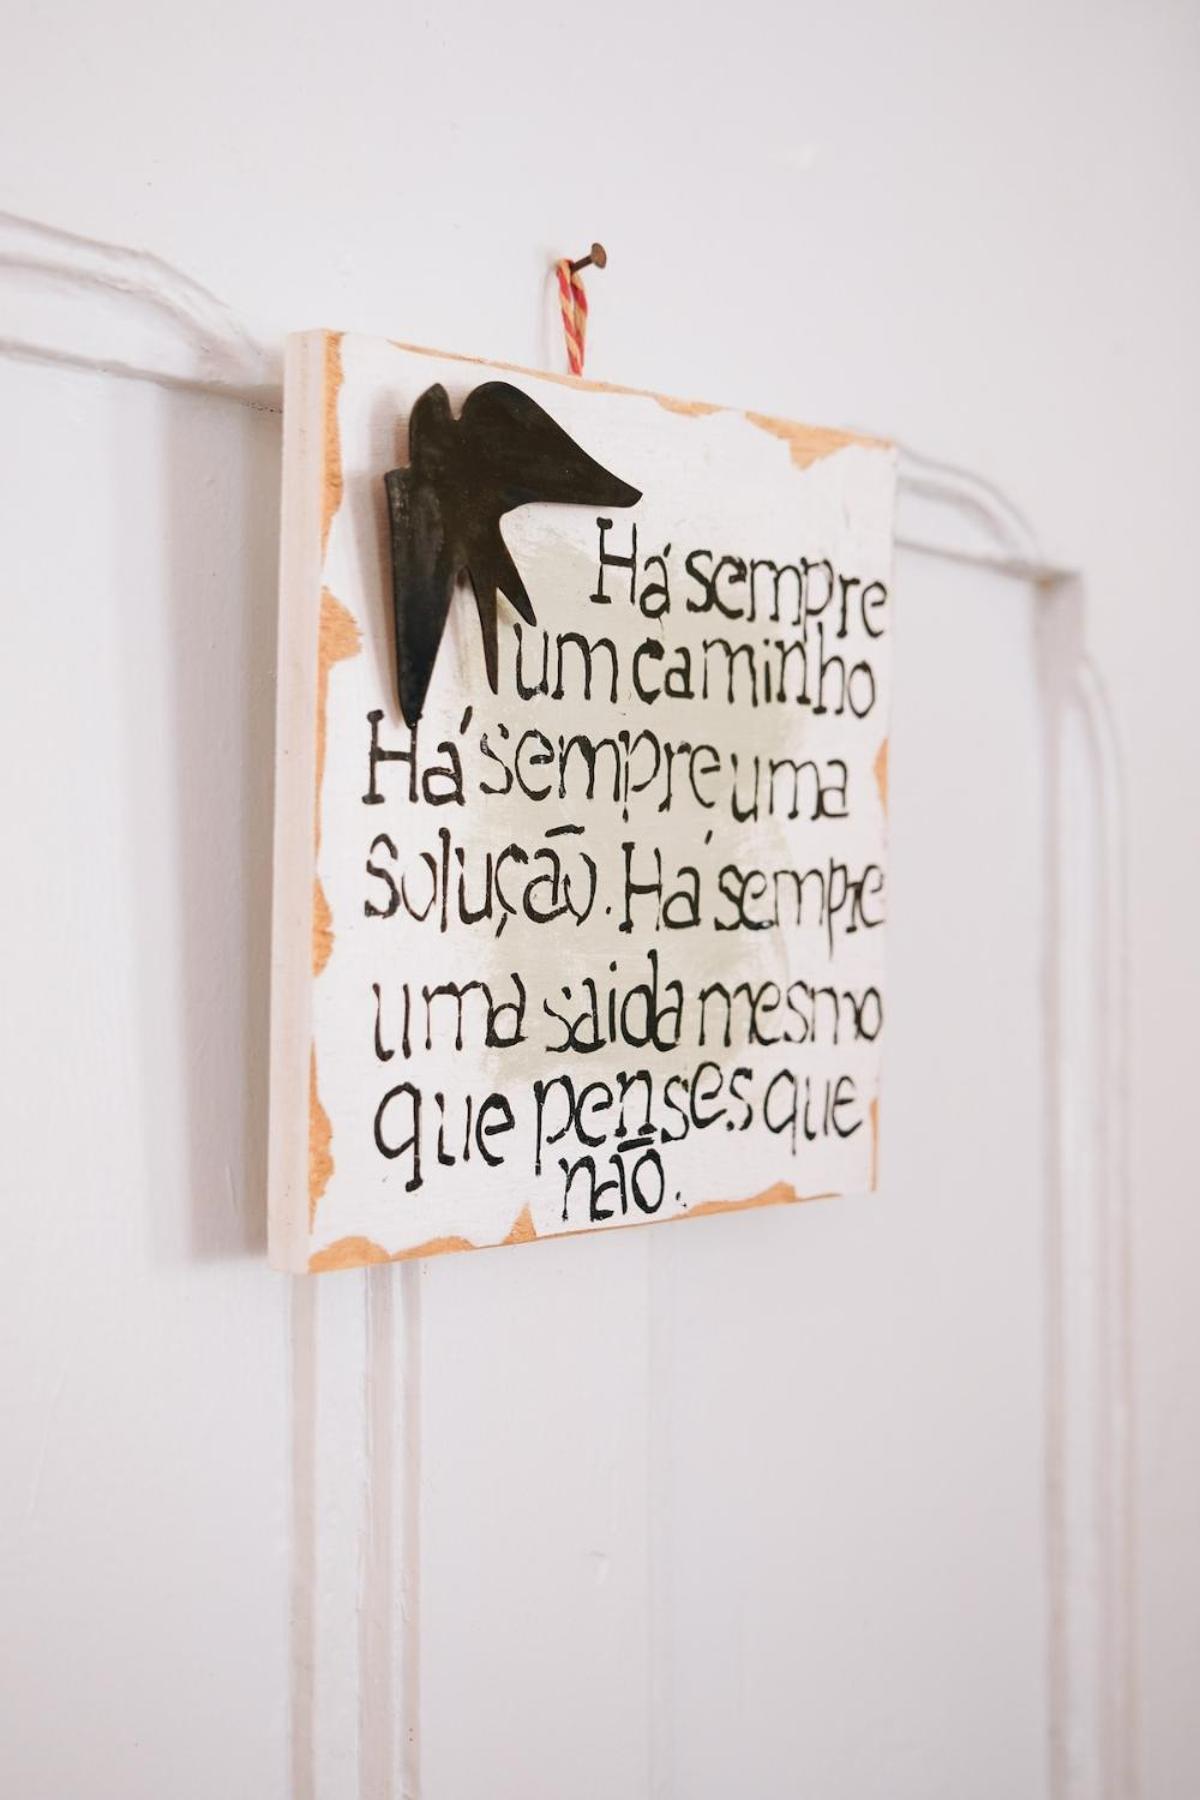 Há sempre
um caminho
Há sempre uma
solução. Há sempre
uma saida mesmo
que penses que
não.